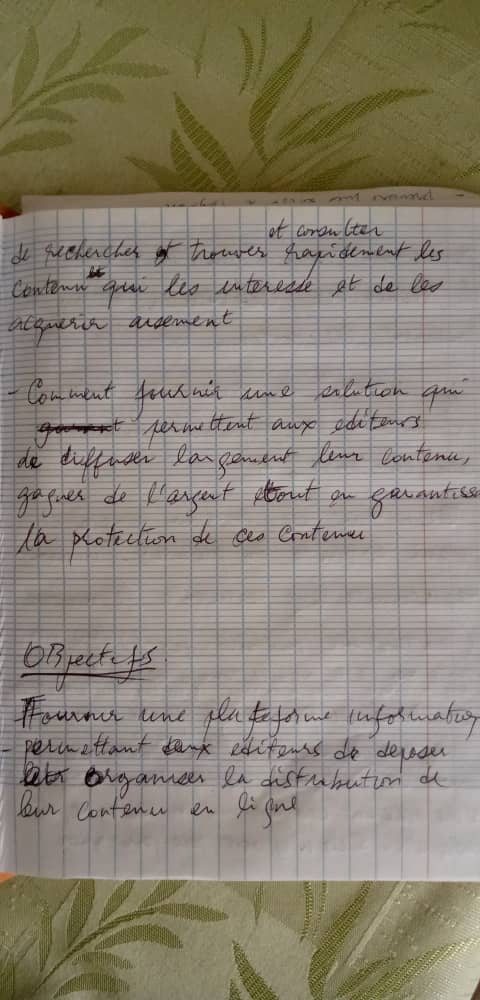 et consulter
de rechercher et trouver rapidement les
contenu qui les interesse et de les
acquerir aisement
- Comment fournir une solution qui
permettent aux editeurs
de diffuser largement leur contenu,
gagner de l'argent tout en garantiss
la protection de ces contenu
Objectifs.
- Fournir une plateforme information
- permettant aux editeurs de deposer
organiser la distribution de
leur contenu en ligne